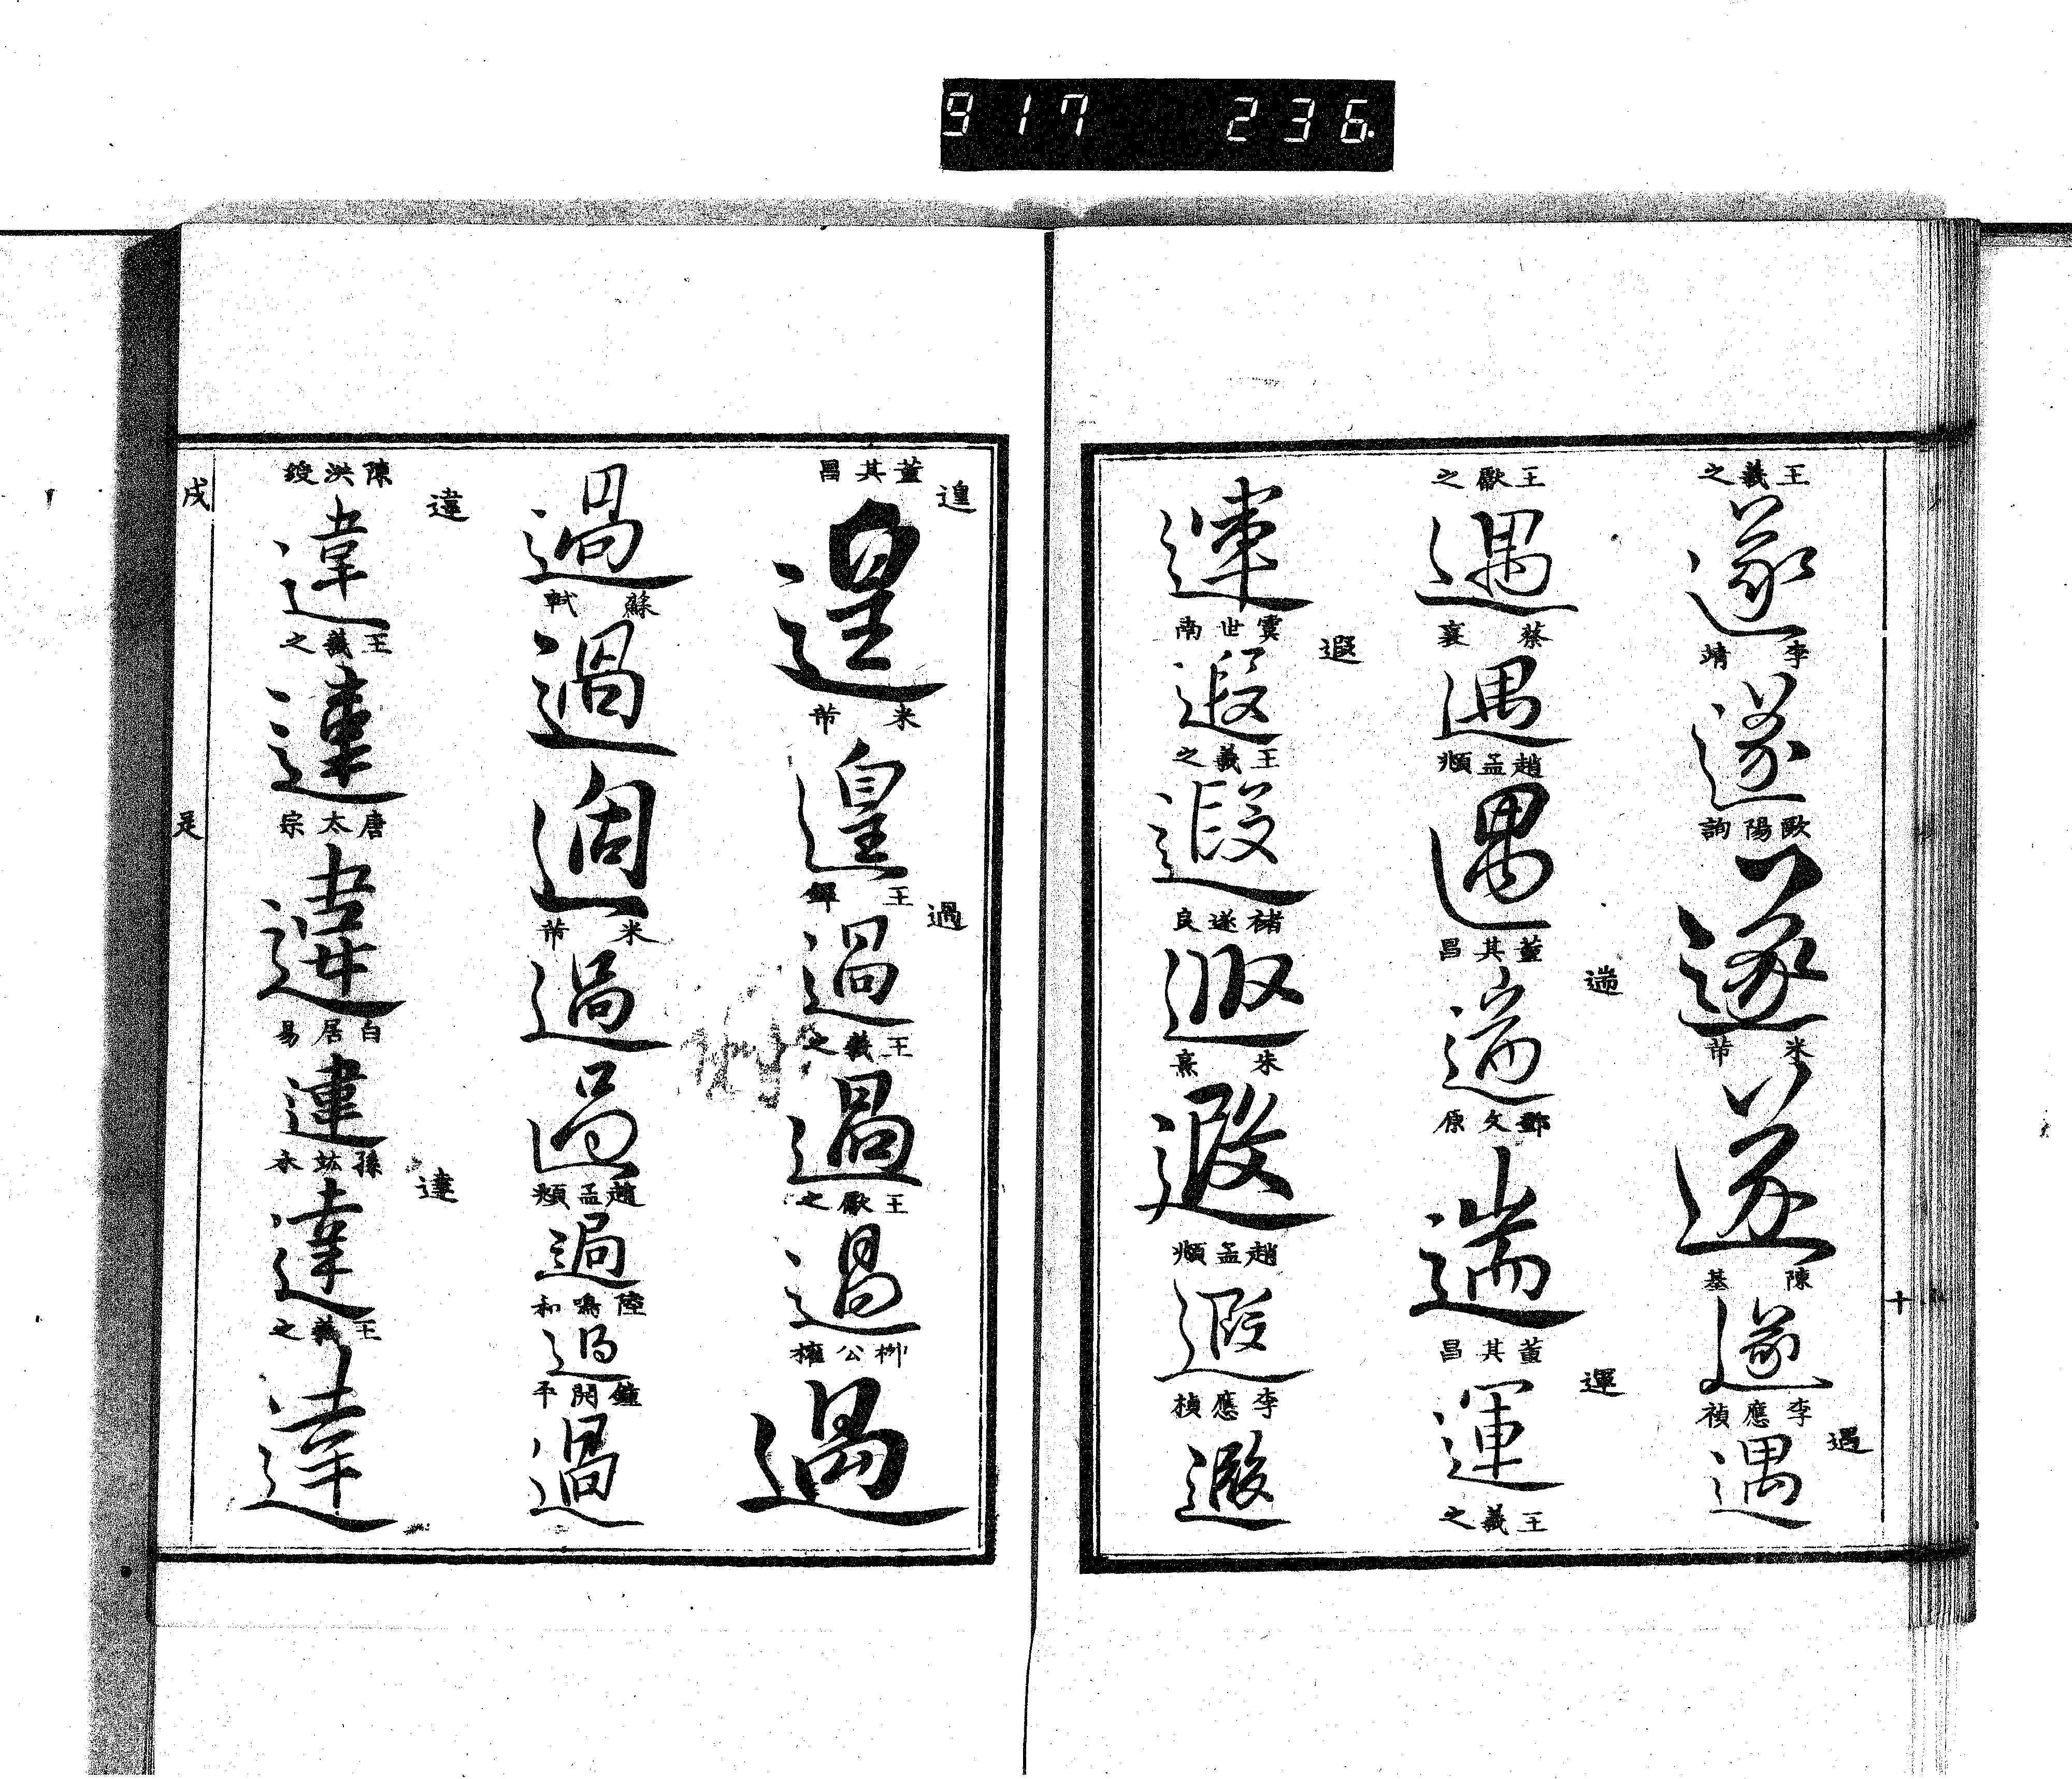 917 236
王羲之
遂
李靖
遂
歐陽詢
遂
米芾
遂
陳基
遂
李應禎
遇
遇
王獻之
遇
蔡襄
遇
趙孟頫
遇
董其昌
遄
遄
鄧文原
遄
董其昌
運
運
王羲之
運
虞世南
遐
遐
王羲之
遐
褚遂良
遐
朱熹
遐
趙孟頫
遐
李應楨
遐
十
董其昌
遑
遑
米芾
遑
王鐸
過
過
王羲之
過
王獻之
過
柳公權
過
過
蘇軾
過
過
米芾
過
過
趙孟頫
過
陸鳴和
過
鐘開平
過
陳洪綬
違
違
王羲之
違
唐太宗
違
白居易
違
孫竑禾
達
達
王羲之
達
戌
辵